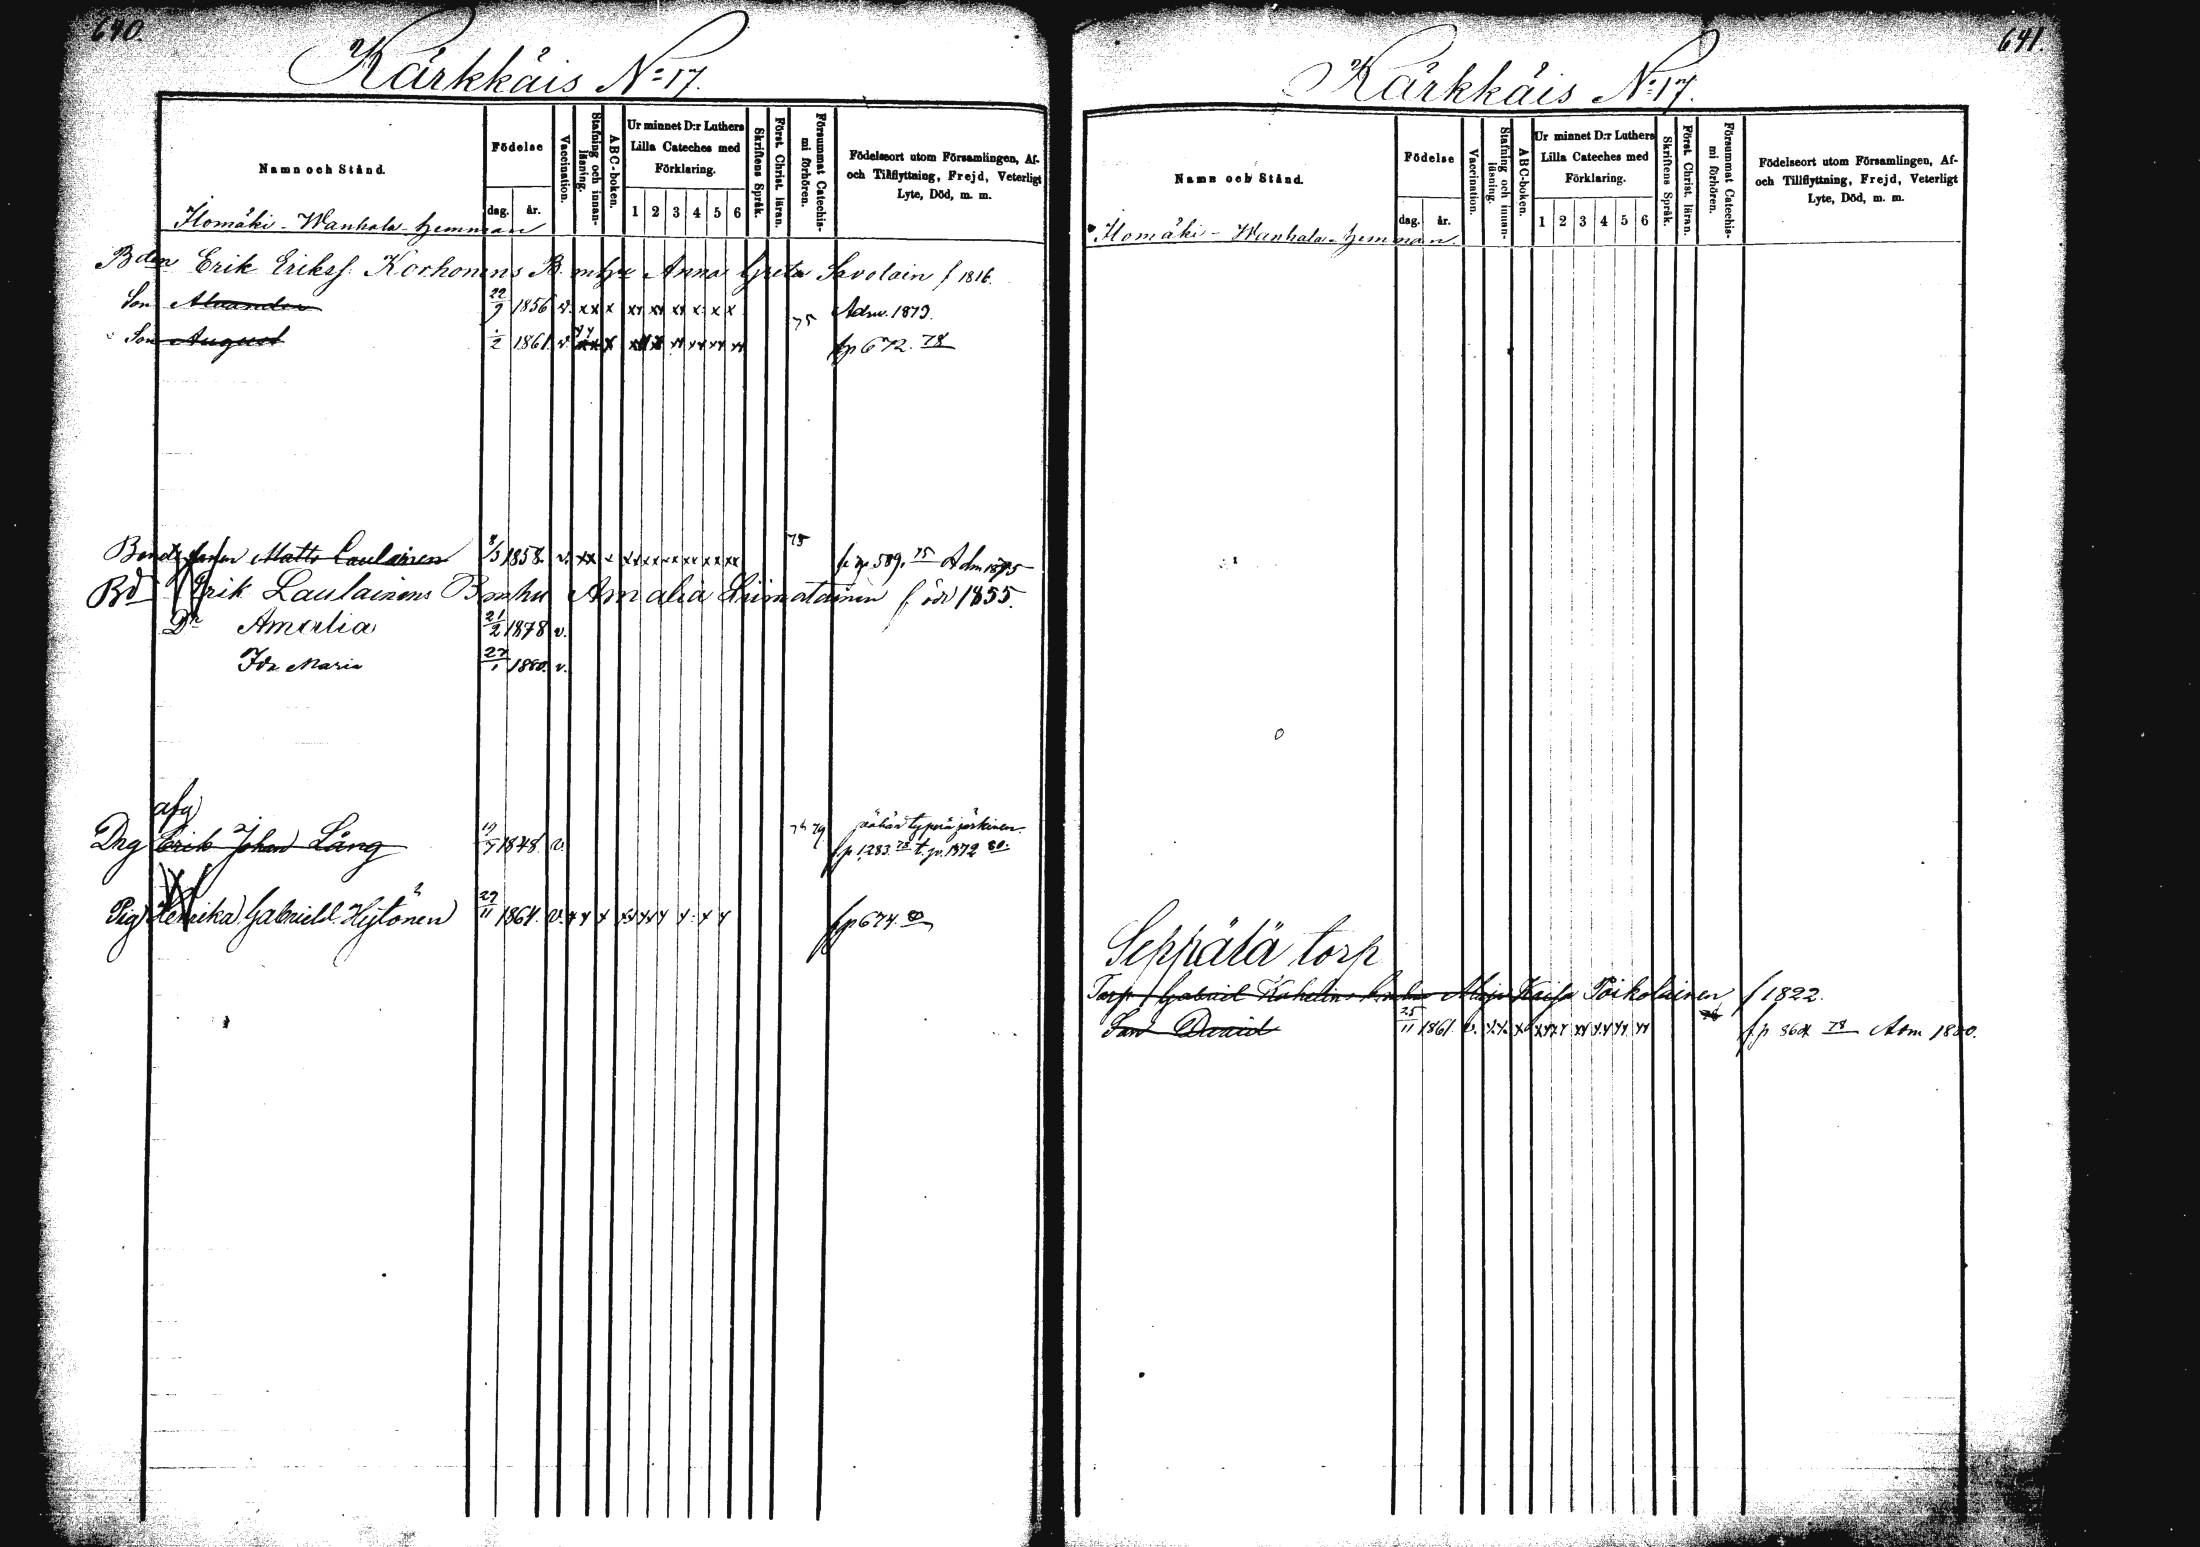 640.
Kärkkäis No 17.
Namn och Stånd.
Födelse
dag.
år.
Vaccination.
Stafning och innan-
läsning.
ABC-boken.
Ur minnet D:r Luthers
Lilla Cateches med
Förklaring.
1 2 3 4 5 6
Skriftens Språk.
Först. Christ. läran.
Försummat Catechis-
mi förhören.
Födelseort utom Församlingen, Af-
och Tillflyttning, Frejd, Veterligt
Lyte, Död, m. m.
Ilomäki - Wanhala - hemman
Bden Erik Erikss. Korhonens B. mhu Anna Greta Savolain f 1816.
Son Alexander 22/9 1856 v. xx x xx xx xx x x x Adm. 1873.
Son August /2 1861. v. xx x xx x xx xx xx xx 75 fp 672. 78
Bonde Johan Matts Laulainen 8/3 1858. v. xx x xx xx xx xx xx xx 75 fr p 589. 75 Adm 1875
Bd Erik Laulainens B mhu Amalia Liimatainen född 1855.
Dr Amalia 21/2 1878 v.
Ida Maria 27/1 1880. v.
afg
Dng Erik Johan Lång 19/9 1848. v. 79 fp 1283. 78 t. p. 1372 80.
Pig Henrika Gabrielsd. Hytönen 29/11 1864. v. x x x x x x x x x fp 674. 80
641.
Kärkkäis No 17.
Namn och Stånd.
Födelse
dag.
år.
Vaccination.
Stafning och innan-
läsning.
ABC-boken.
Ur minnet D:r Luthers
Lilla Cateches med
Förklaring.
1 2 3 4 5 6
Skriftens Språk.
Först. Christ. läran.
Försummat Catechis-
mi förhören.
Födelseort utom Församlingen, Af-
och Tillflyttning, Frejd, Veterligt
Lyte, Död, m. m.
Ilomäki - Wanhala - hemman
Seppälä torp
Torp Gabriel Kahelins Maja Kaisa Poikolainen f 1822.
Son David 25/11 1861 v. xx x xxx xx xx xx xx fp 364 78 Adm 1880.